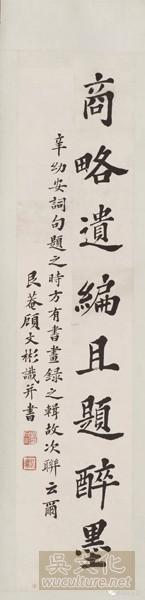 商略遺編且題醉墨
辛幼安詞句題之時方有書畫錄之輯故次聯云爾
艮菴顧文彬識并書
吳文化
www.wuculture.net